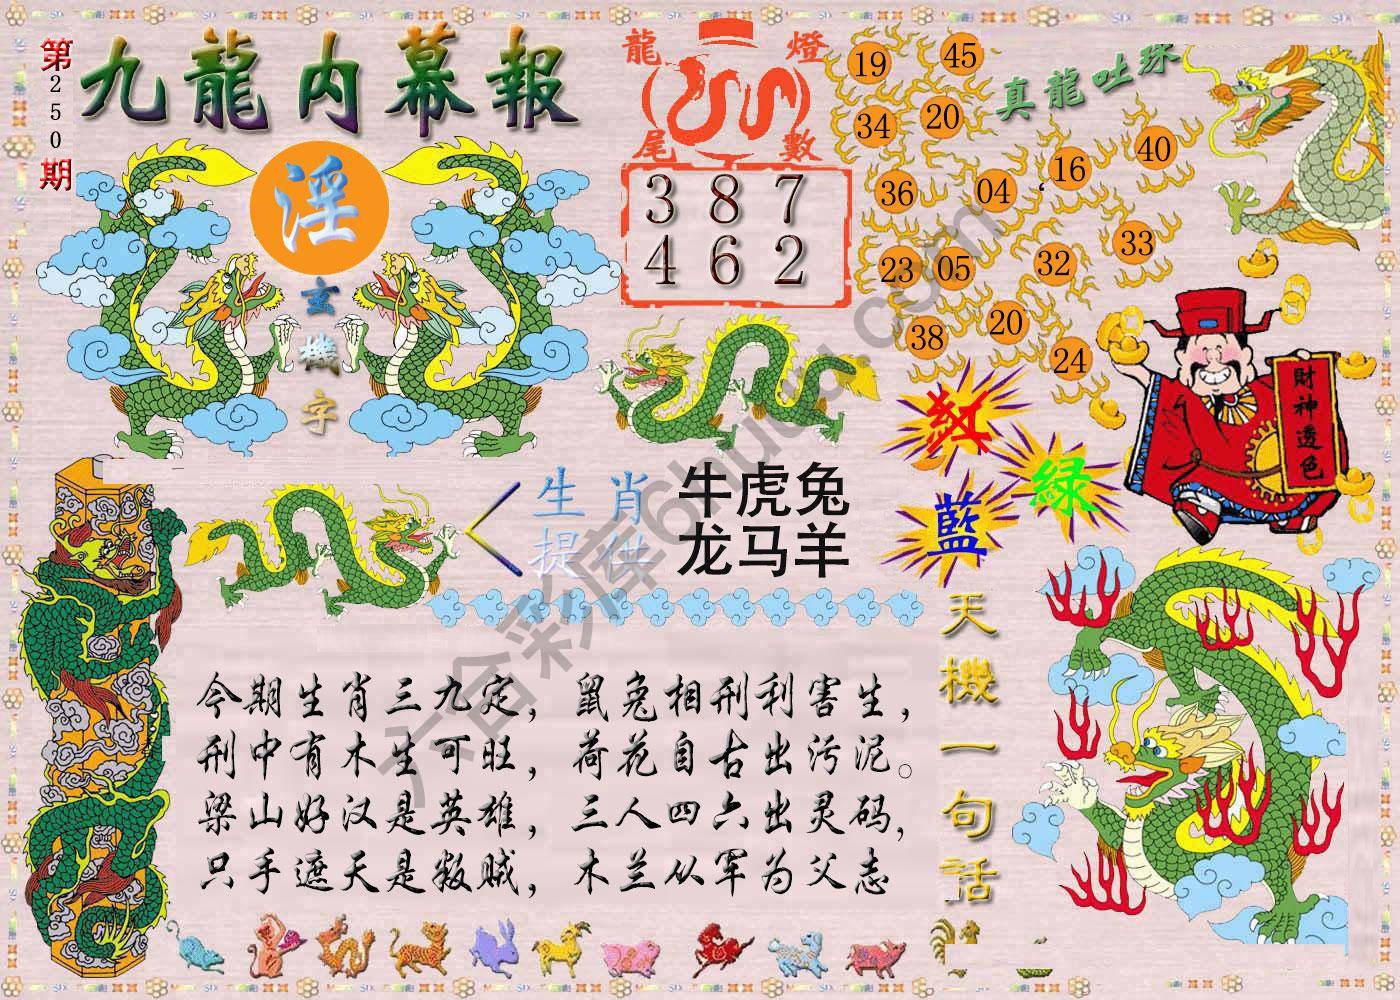 第250期
九龍内幕報
淫
玄機字
龍燈尾數
3 8 7
4 6 2
真龍吐珠
19 45
34 20
36 04 16 40
23 05 32 33
38 20 24
財神透色
紅
綠
藍
生肖提供
牛虎兔
龙马羊
今期生肖三九定，鼠兔相刑利害生，
刑中有木生可旺，荷花自古出污泥。
梁山好汉是英雄，三人四六出灵码，
只手遮天是叛贼，木兰从军为父志
天機一句话
六合彩库6hudd.com